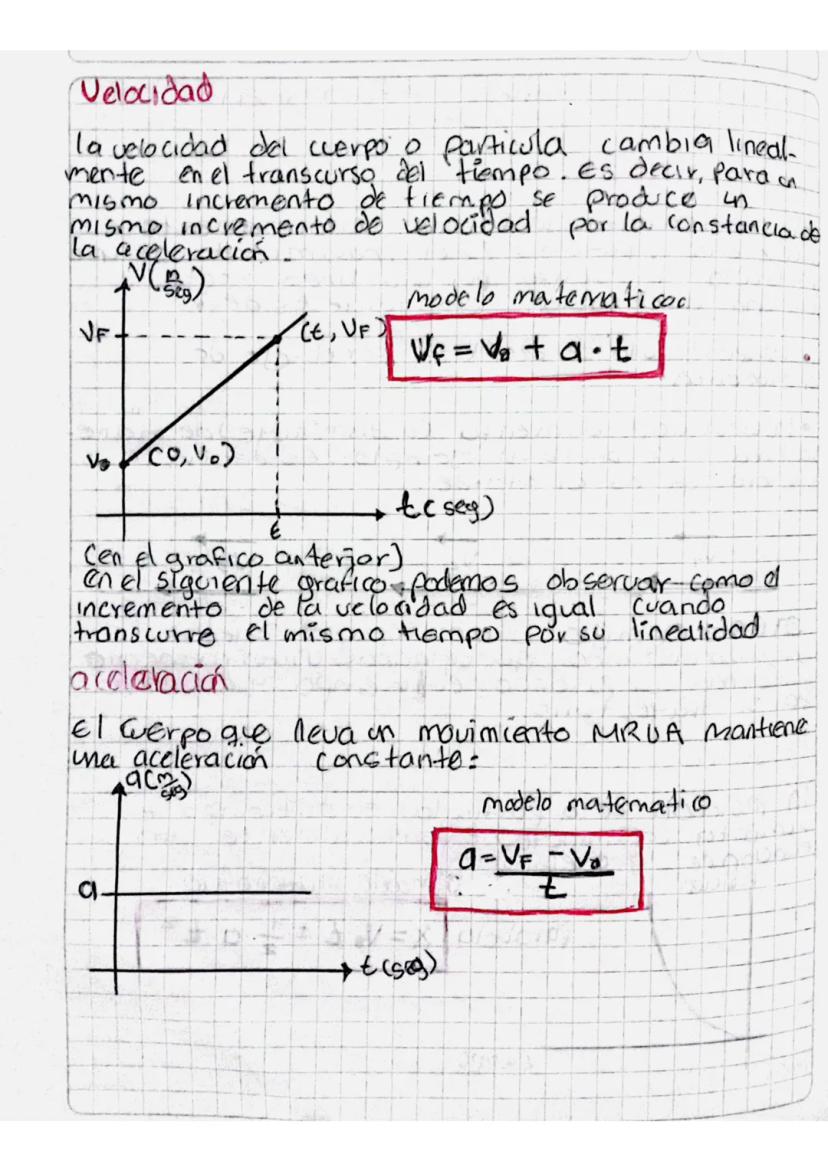 Velocidad
la velocidad del cuerpo o particula cambia lineal-
mente en el transcurso del tiempo. Es decir, para un
mismo incremento de tiempo se produce un
mismo incremento de velocidad por la constancia de
la aceleración.
V(m/seg)
modelo matematico
VF
(t, VF)
VF = V0 + a · t
V0
(0, V0)
t(seg)
t
(en el grafico anterior)
en el siguiente grafico podemos observar como el
incremento de la velocidad es igual cuando
transcurre el mismo tiempo por su linealidad
aceleración
El cuerpo que lleva un movimiento MRUA mantiene
una aceleración constante:
a(m/seg)
modelo matematico
a = VF - V0 / t
a
t(seg)